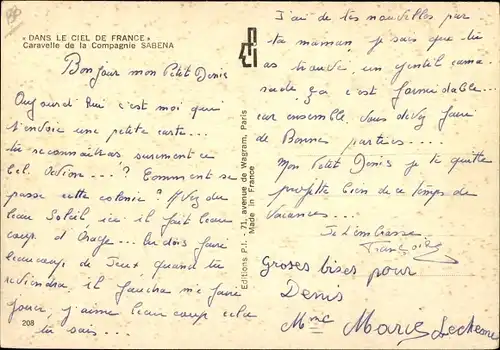 « DANS LE CIEL DE FRANCE »
Caravelle de la Compagnie SABENA
Bonjour mon Petit Denis
Aujourd'hui c'est moi qui
t'envoie une petite carte...
tu reconnaitras surement ce
bel avion....? Comment se
passe cette colonie? Avez du
beau Soleil, ici il fait beau
coup d'Orage... tu dois faire
beaucoup de Jeux quand tu
reviendra il faudra me faire
jouer, j'aime beau coup cela
tu sais...
208
Editions P.I. - 71, avenue de Wagram, Paris
Made in France
J'ai de tes nouvelles par
ta maman, je sais que tu
as trouvé un gentil cama
rade, ça c'est formidable...
car ensemble vous devez faire
de Bonnes parties.....
Mon Petit Denis je te quitte
profite bien de ce temps de
vacances...
Je t'embrasse
Françoise
Groses bises pour
Denis
Mme Marie